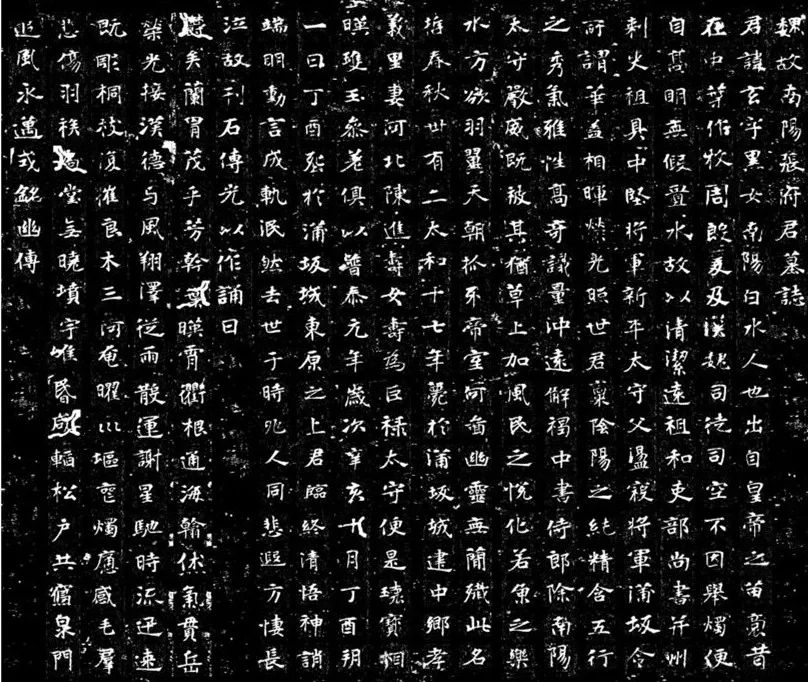 魏故南陽張府君墓誌
君諱玄字黑女南陽白水人也出自皇帝之苗裔昔
在中葉作牧周殷爰及漢魏司徒司空不因舉燭便
自高明無假置水故以清潔遠祖和吏部尚書并州
刺史祖具中堅將軍新平太守父盪寇將軍蒲坂令
所謂華蓋相暉榮光照世君稟陰陽之純精含五行
之秀氣雅性高奇識量沖遠解褐中書侍郎除南陽
太守嚴威既被其猶草上加風民之悅化若魚之樂
水方欲羽翼天朝抓牙帝室何啚幽靈無簡殲此名
哲春秋卅有二太和十七年薨於蒲坂城建中鄉孝
義里妻河北陳進壽女壽為巨祿太守便是瓌寶相
暎瓊玉參差俱以普泰元年歲次辛亥十月丁酉朔
一日丁酉葬於蒲坂城東原之上君臨終清悟神誚
端明動言成軌泯然去世于時兆人同悲遐方悽長
泣故刊石傳光以作誦曰
鬱矣蘭胄茂乎芳幹葉暎霄衢根通海翰休氣貫岳
榮光接漢德与風翔澤從雨散運謝星馳時流迅速
既彫桐枝復摧良木三河奄曜川塸寖燭痛感毛羣
悲傷羽族扃堂無曉墳宇唯昏咸輼松戶共寢泉門
追風永邁式銘幽傳